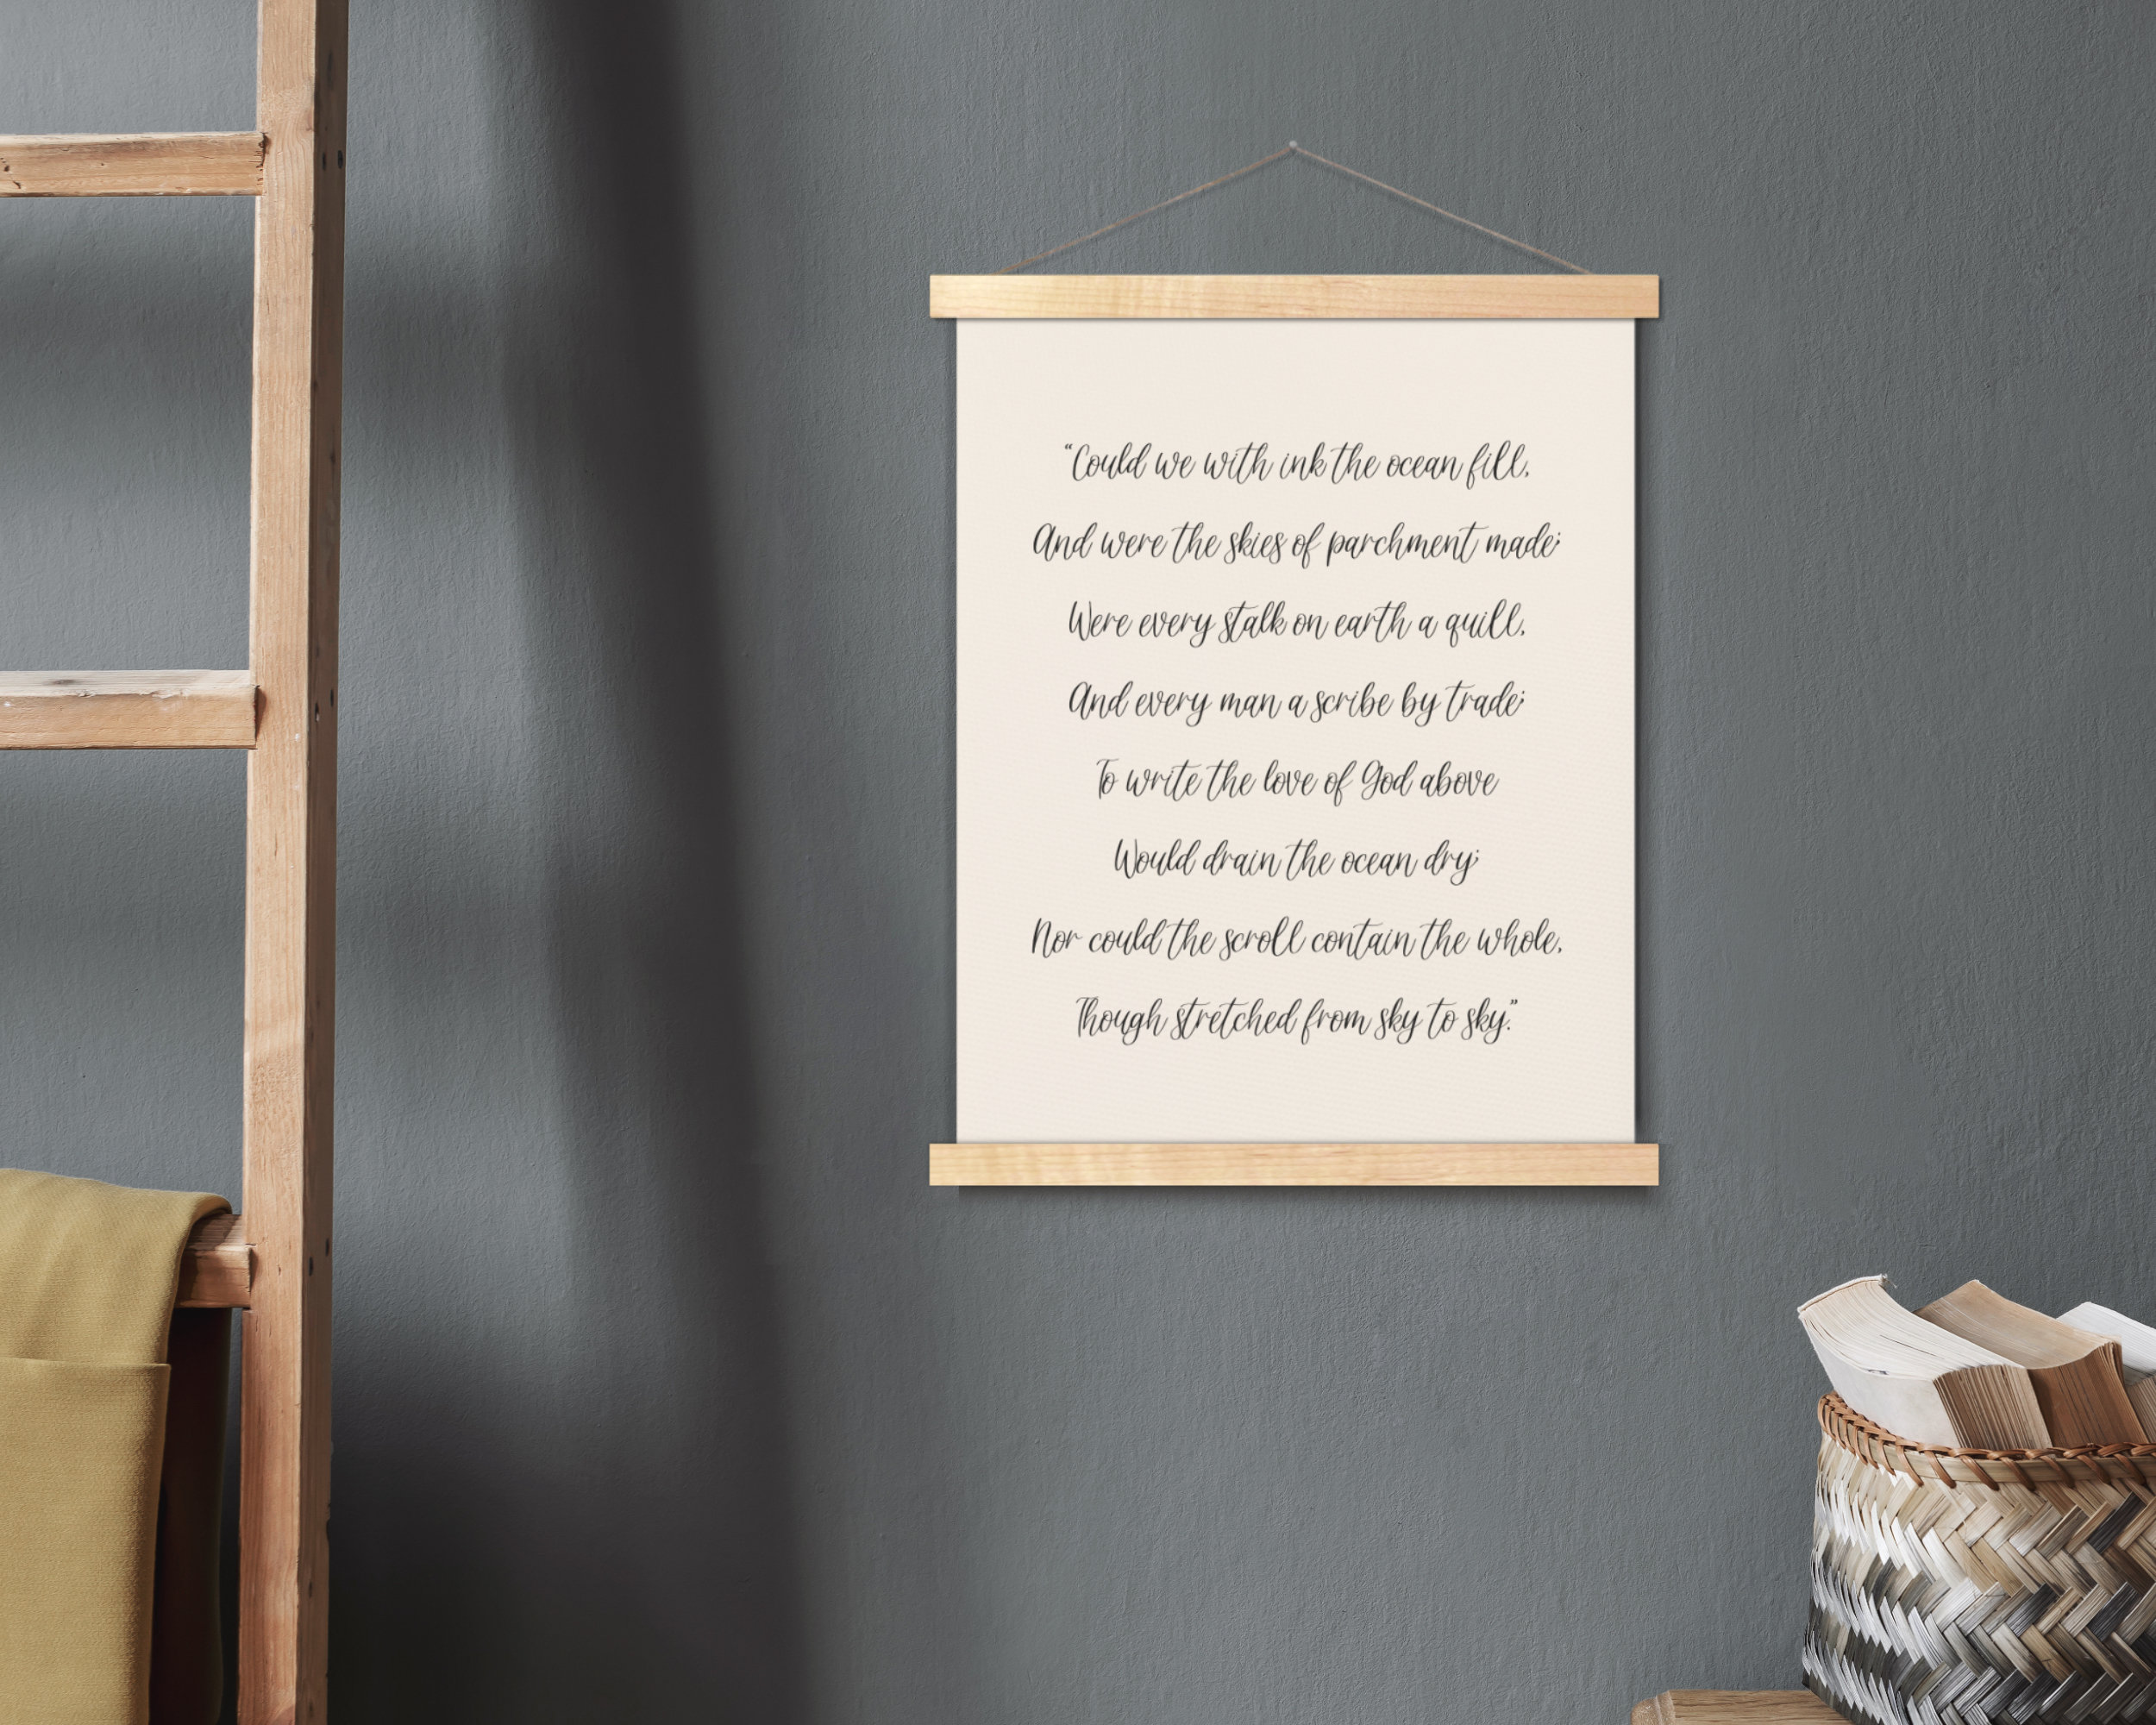 “Could we with ink the ocean fill,
And were the skies of parchment made;
Were every stalk on earth a quill,
And every man a scribe by trade;
To write the love of God above
Would drain the ocean dry;
Nor could the scroll contain the whole,
Though stretched from sky to sky.”